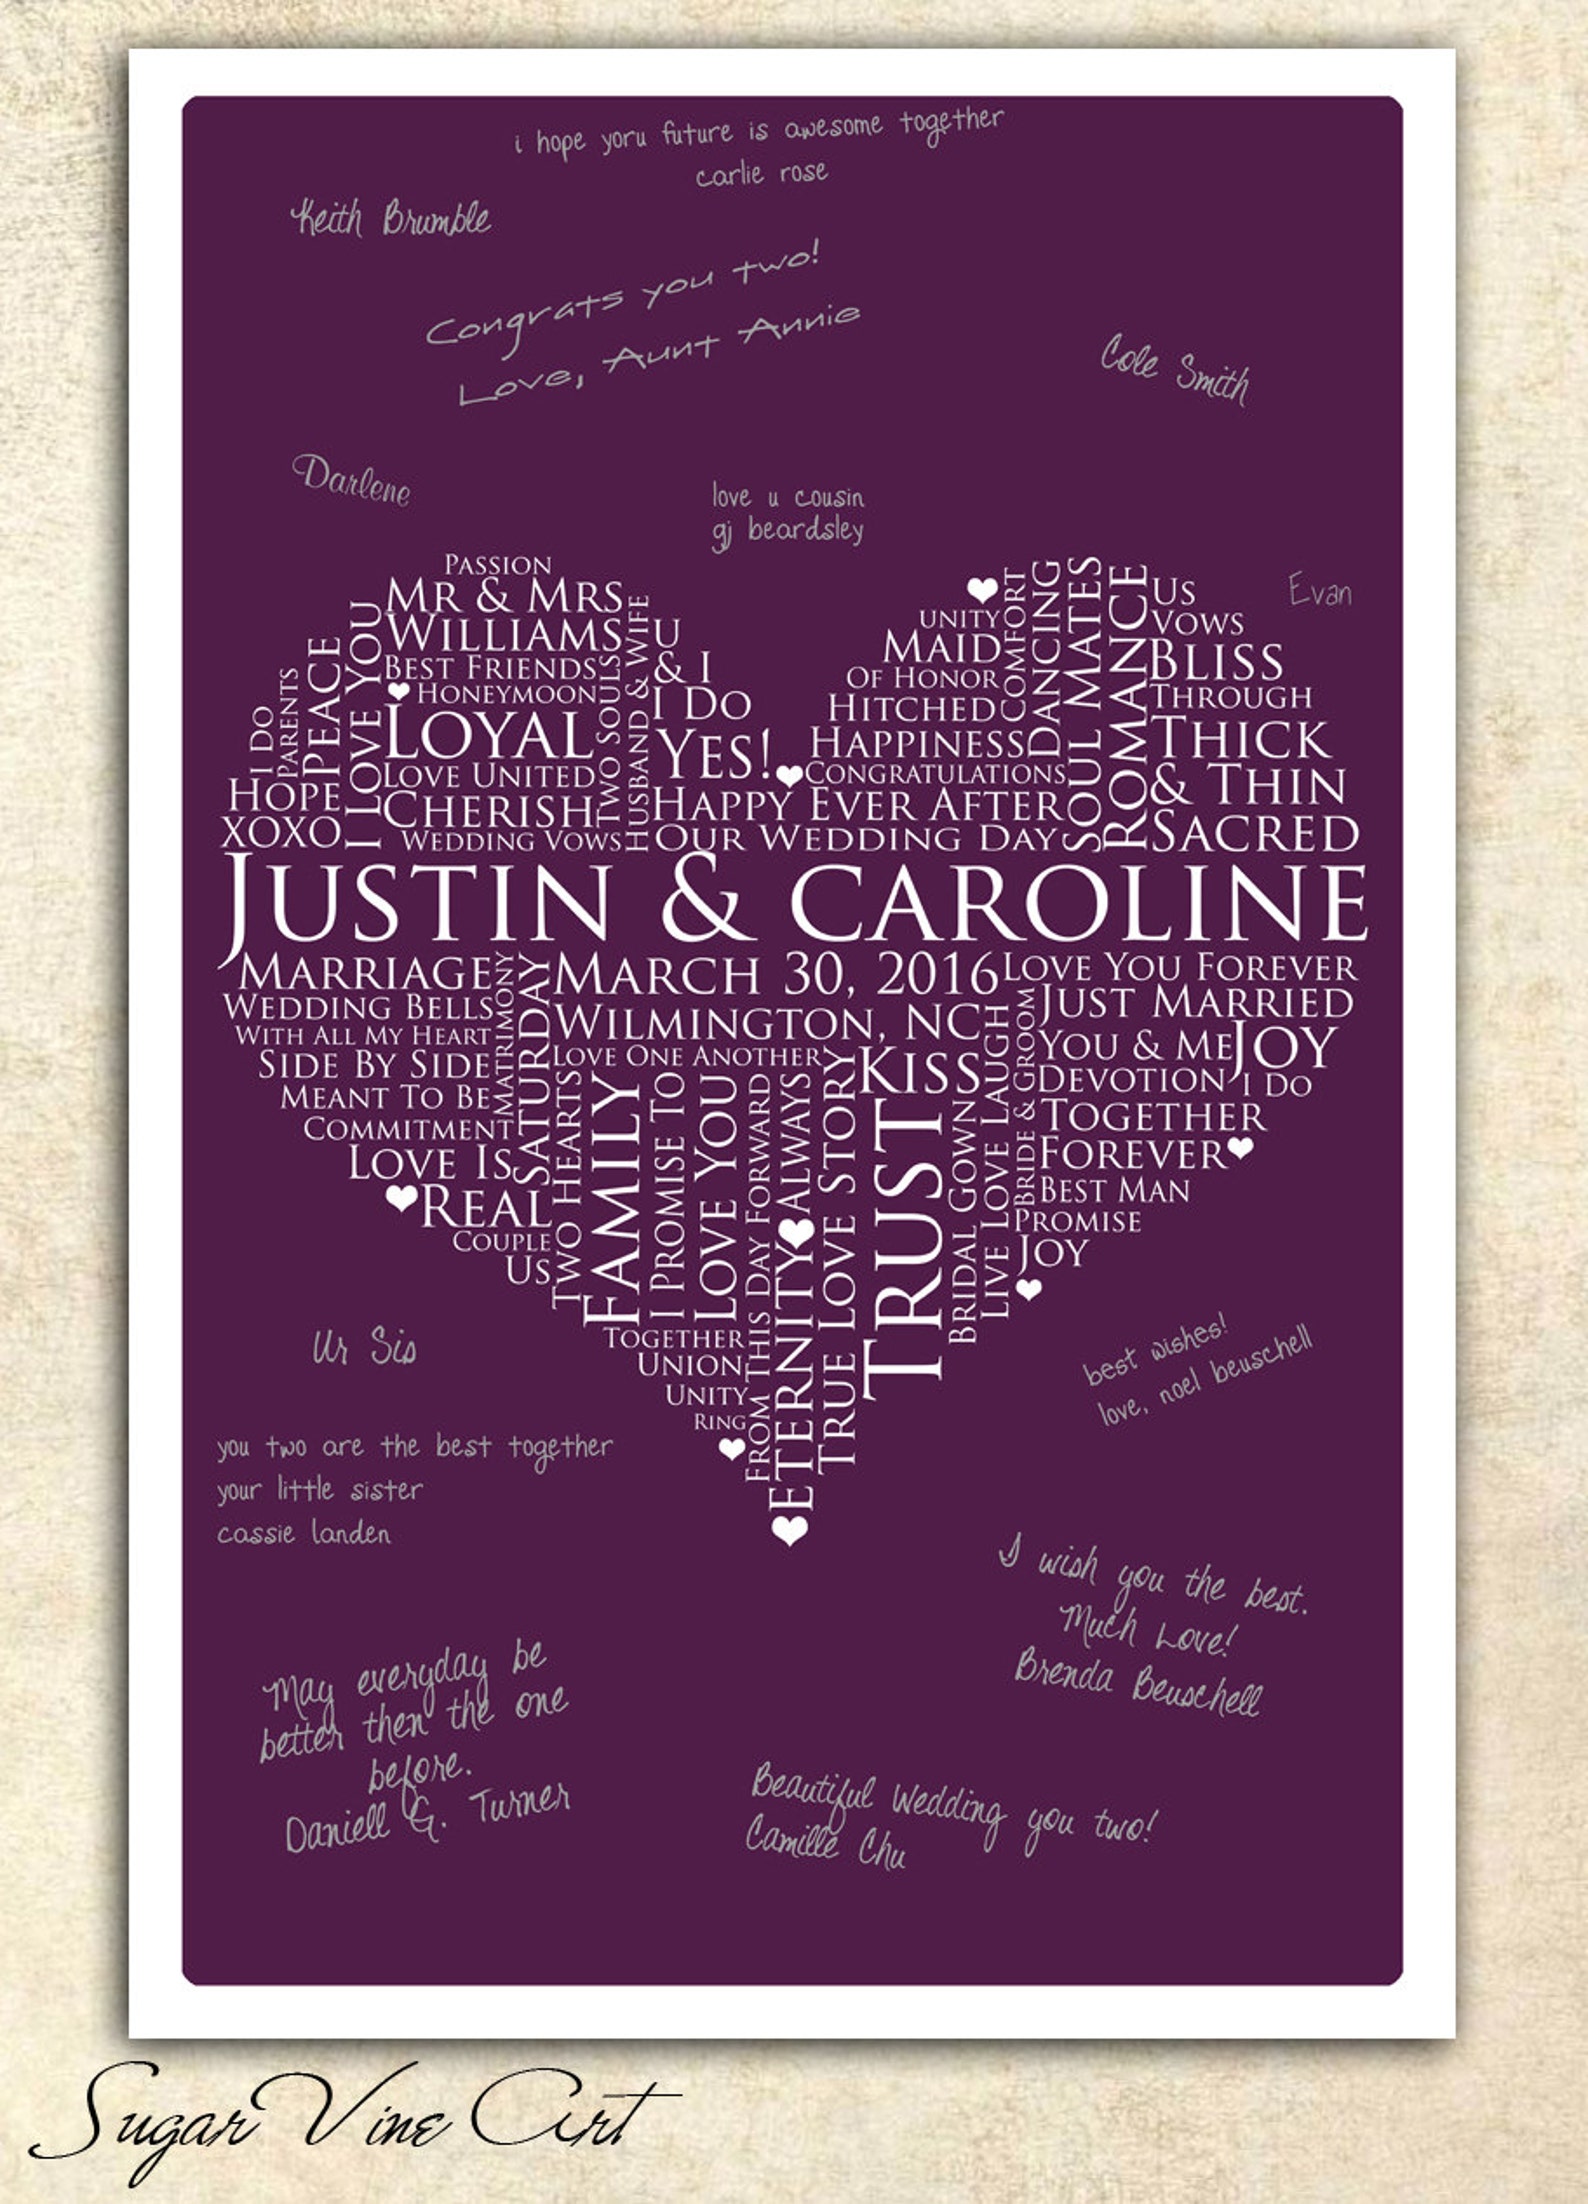 i hope yoru future is awesome together
carlie rose
Keith Brumble
Congrats you two!
Love, Aunt Annie
Cole Smith
Darlene
love u cousin
gj beardsley
Evan
Passion
Mr & Mrs
Williams
Best Friends
Honeymoon
Loyal
Love United
Cherish
Wedding Vows
I Do
Parents
Peace
I Love You
Hope
XOXO
Two Souls
Husband & Wife
U
& I
I Do
Yes!
Happy Ever After
Our Wedding Day
Unity
Maid
Of Honor
Hitched
Happiness
Congratulations
Comfort
Dancing
Soul Mates
Romance
Us
Vows
Bliss
Through
Thick
& Thin
Sacred
Justin & Caroline
Marriage
Wedding Bells
With All My Heart
Side By Side
Meant To Be
Commitment
Love Is
Real
Couple
Us
Matrimony
Saturday
March 30, 2016
Wilmington, NC
Love One Another
Kiss
Love You Forever
Just Married
You & Me
Joy
Devotion
I Do
Together
Forever
Best Man
Promise
Joy
Two Hearts
Family
I Promise To
Love You
From This Day Forward
Always
Eternity
True Love Story
Trust
Bridal Gown
Live Love Laugh
Bride & Groom
Together
Union
Unity
Ring
Ur Sis
best wishes!
love, noel beuschell
you two are the best together
your little sister
cassie landen
I wish you the best.
Much Love!
Brenda Beuschell
May everyday be
better then the one
before.
Daniell G. Turner
Beautiful Wedding you two!
Camille Chu
Sugar Vine Art